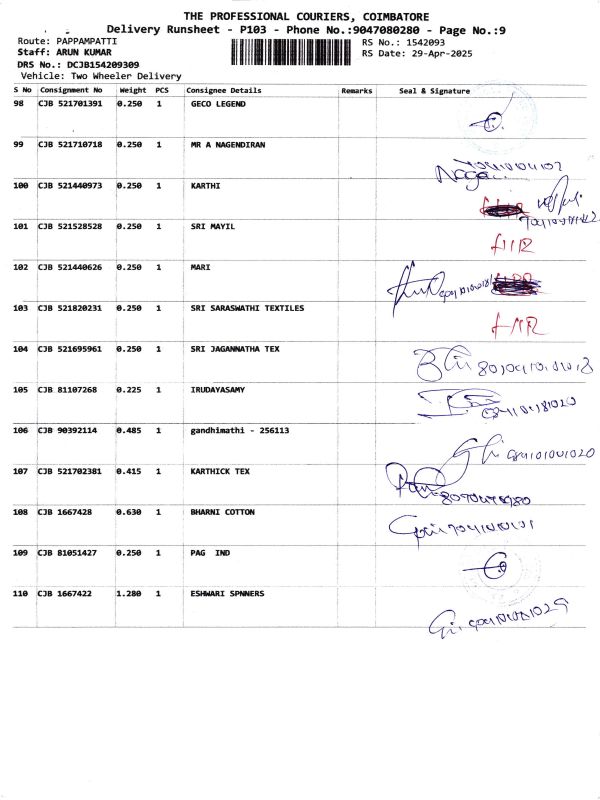 THE PROFESSIONAL COURIERS, COIMBATORE
Delivery Runsheet - P103 - Phone No.:9047080280 - Page No.:9
Route: PAPPAMPATTI RS No.: 1542093
Staff: ARUN KUMAR RS Date: 29-Apr-2025
DRS No.: DCJB154209309
Vehicle: Two Wheeler Delivery
S No Consignment No Weight PCS Consignee Details Remarks Seal & Signature
98 CJB 521701391 0.250 1 GECO LEGEND
99 CJB 521710718 0.250 1 MR A NAGENDIRAN
100 CJB 521440973 0.250 1 KARTHI
101 CJB 521528528 0.250 1 SRI MAYIL
102 CJB 521440626 0.250 1 MARI
103 CJB 521820231 0.250 1 SRI SARASWATHI TEXTILES
104 CJB 521695961 0.250 1 SRI JAGANNATHA TEX
105 CJB 81107268 0.225 1 IRUDAYASAMY
106 CJB 90392114 0.485 1 gandhimathi - 256113
107 CJB 521702381 0.415 1 KARTHICK TEX
108 CJB 1667428 0.630 1 BHARNI COTTON
109 CJB 81051427 0.250 1 PAG IND
110 CJB 1667422 1.280 1 ESHWARI SPNNERS